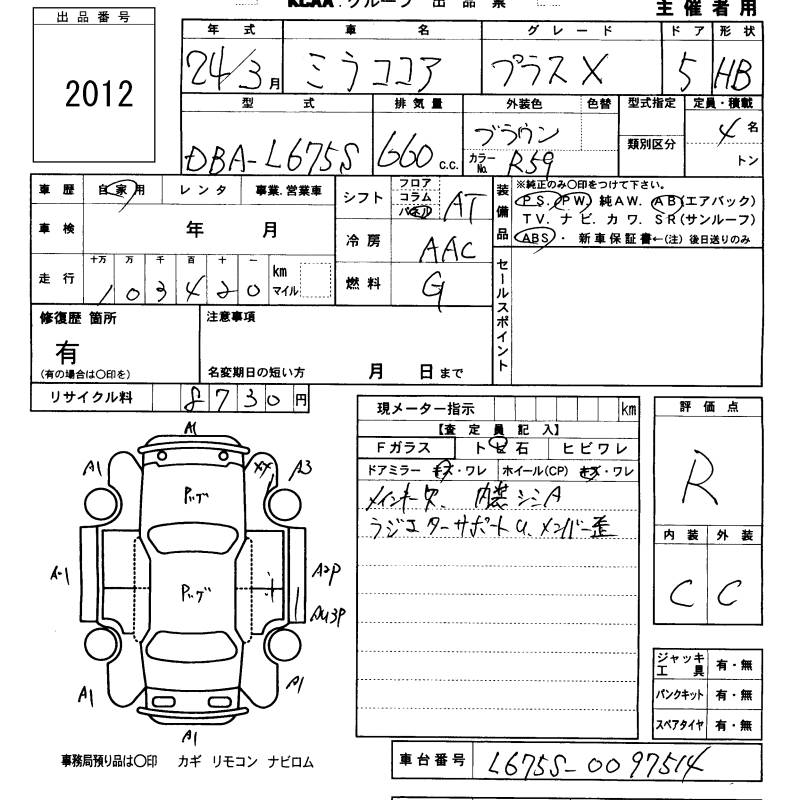 KCAA.グループ 出品票
主催者用
出品番号
2012
年式 車名 グレード ドア 形状
24/3月 ミラココア プラスX 5 HB
型式 排気量 外装色 色替 型式指定 定員・積載
DBA-L675S 660 c.c. ブラウン 類別区分 4名
カラーNo. R59 トン
車歴 自家用 レンタ 事業.営業車
車検 年 月
走行 十万 万 千 百 十 一
1 0 3 4 2 0 km マイル
シフト フロア コラム パネル AT
冷房 AAC
燃料 G
装備品
※純正のみ〇印をつけて下さい。
P S. P W. 純A W. A B(エアバック)
T V. ナ ビ. カ ワ. S R(サンルーフ)
ABS ・ 新車保証書←(注) 後日送りのみ
セールスポイント
修復歴 箇所
有
(有の場合は〇印を)
注意事項
名変期日の短い方 月 日まで
リサイクル料 8730円
現メーター指示 km
【査定員記入】
Fガラス トビ石 ヒビワレ
ドアミラー キズ・ワレ ホイール(CP) キズ・ワレ
メインキー欠、内装シミA
ラジエターサポートu、メンバー歪
評価点
R
内装 外装
C C
A1
A1
XX
A3
Pップ
A-1
A2P
Pップ
AU3P
A1
A1
A1
ジャッキ工具 有・無
パンクキット 有・無
スペアタイヤ 有・無
事務局預り品は〇印 カギ リモコン ナビロム
車台番号 L675S-0097514